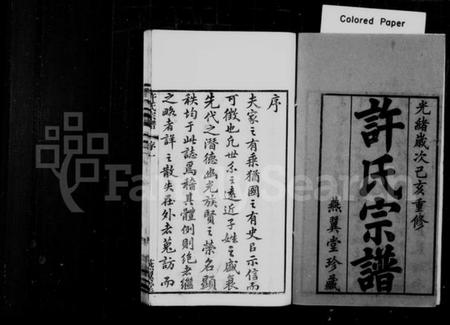 Colored Paper
光緒歲次己亥重修
許氏宗譜
燕翼堂珍藏
序
夫家之有乘猶國之有史自示信而
可徵也凡世系之遠近子姓之盛衰
先代之潛德幽光族賢之榮名顯
秩均于此誌焉稽其體例則絕者繼
之略者詳之散失在外者蒐訪而
FamilySearch